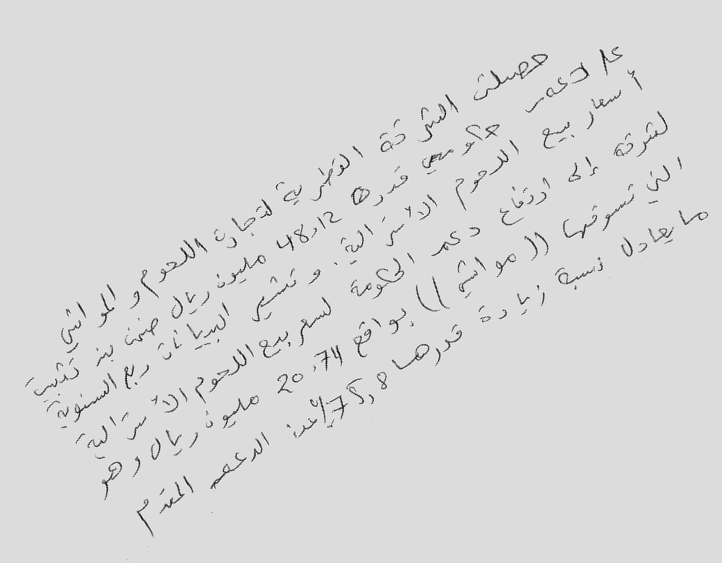 حصلت الشركة القطرية لتجارة اللحوم والمواشي
على دعم حكومي قدره 48.12 مليون ريال ضمن بند تثبيت
أسعار بيع اللحوم الأسترالية. وتشير البيانات ربع السنوية
لشركة إلى ارتفاع دعم الحكومة لسعر بيع اللحوم الأسترالية
التي تسوقها ((مواشي)) بواقع 20.74 مليون ريال وهو
ما يعادل نسبة زيادة قدرها 75,8% عن الدعم المقدم